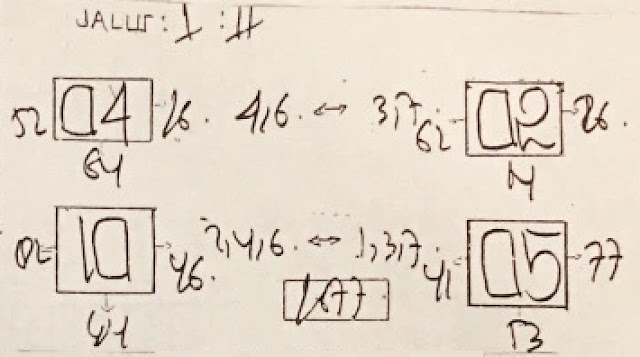 JALUR : 1 : 11
52 04 26. 4,6. ↔ 3,7. 62 02 26.
64 14
02 10 46. 2,4,6. ↔ 1,3,7. 41 05 77
41 1677 13